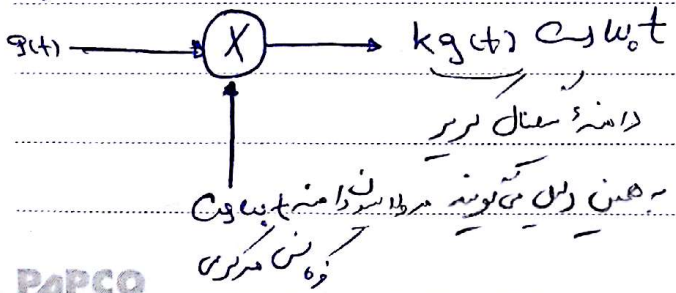 g(t) X kg(t) Cos ω₀t
دامنهٔ سیگنال کریر
به همین دلیل می‌گویند مدولاسیون دامنه Cos ω₀t
فرکانس مرکزی
PAPCO